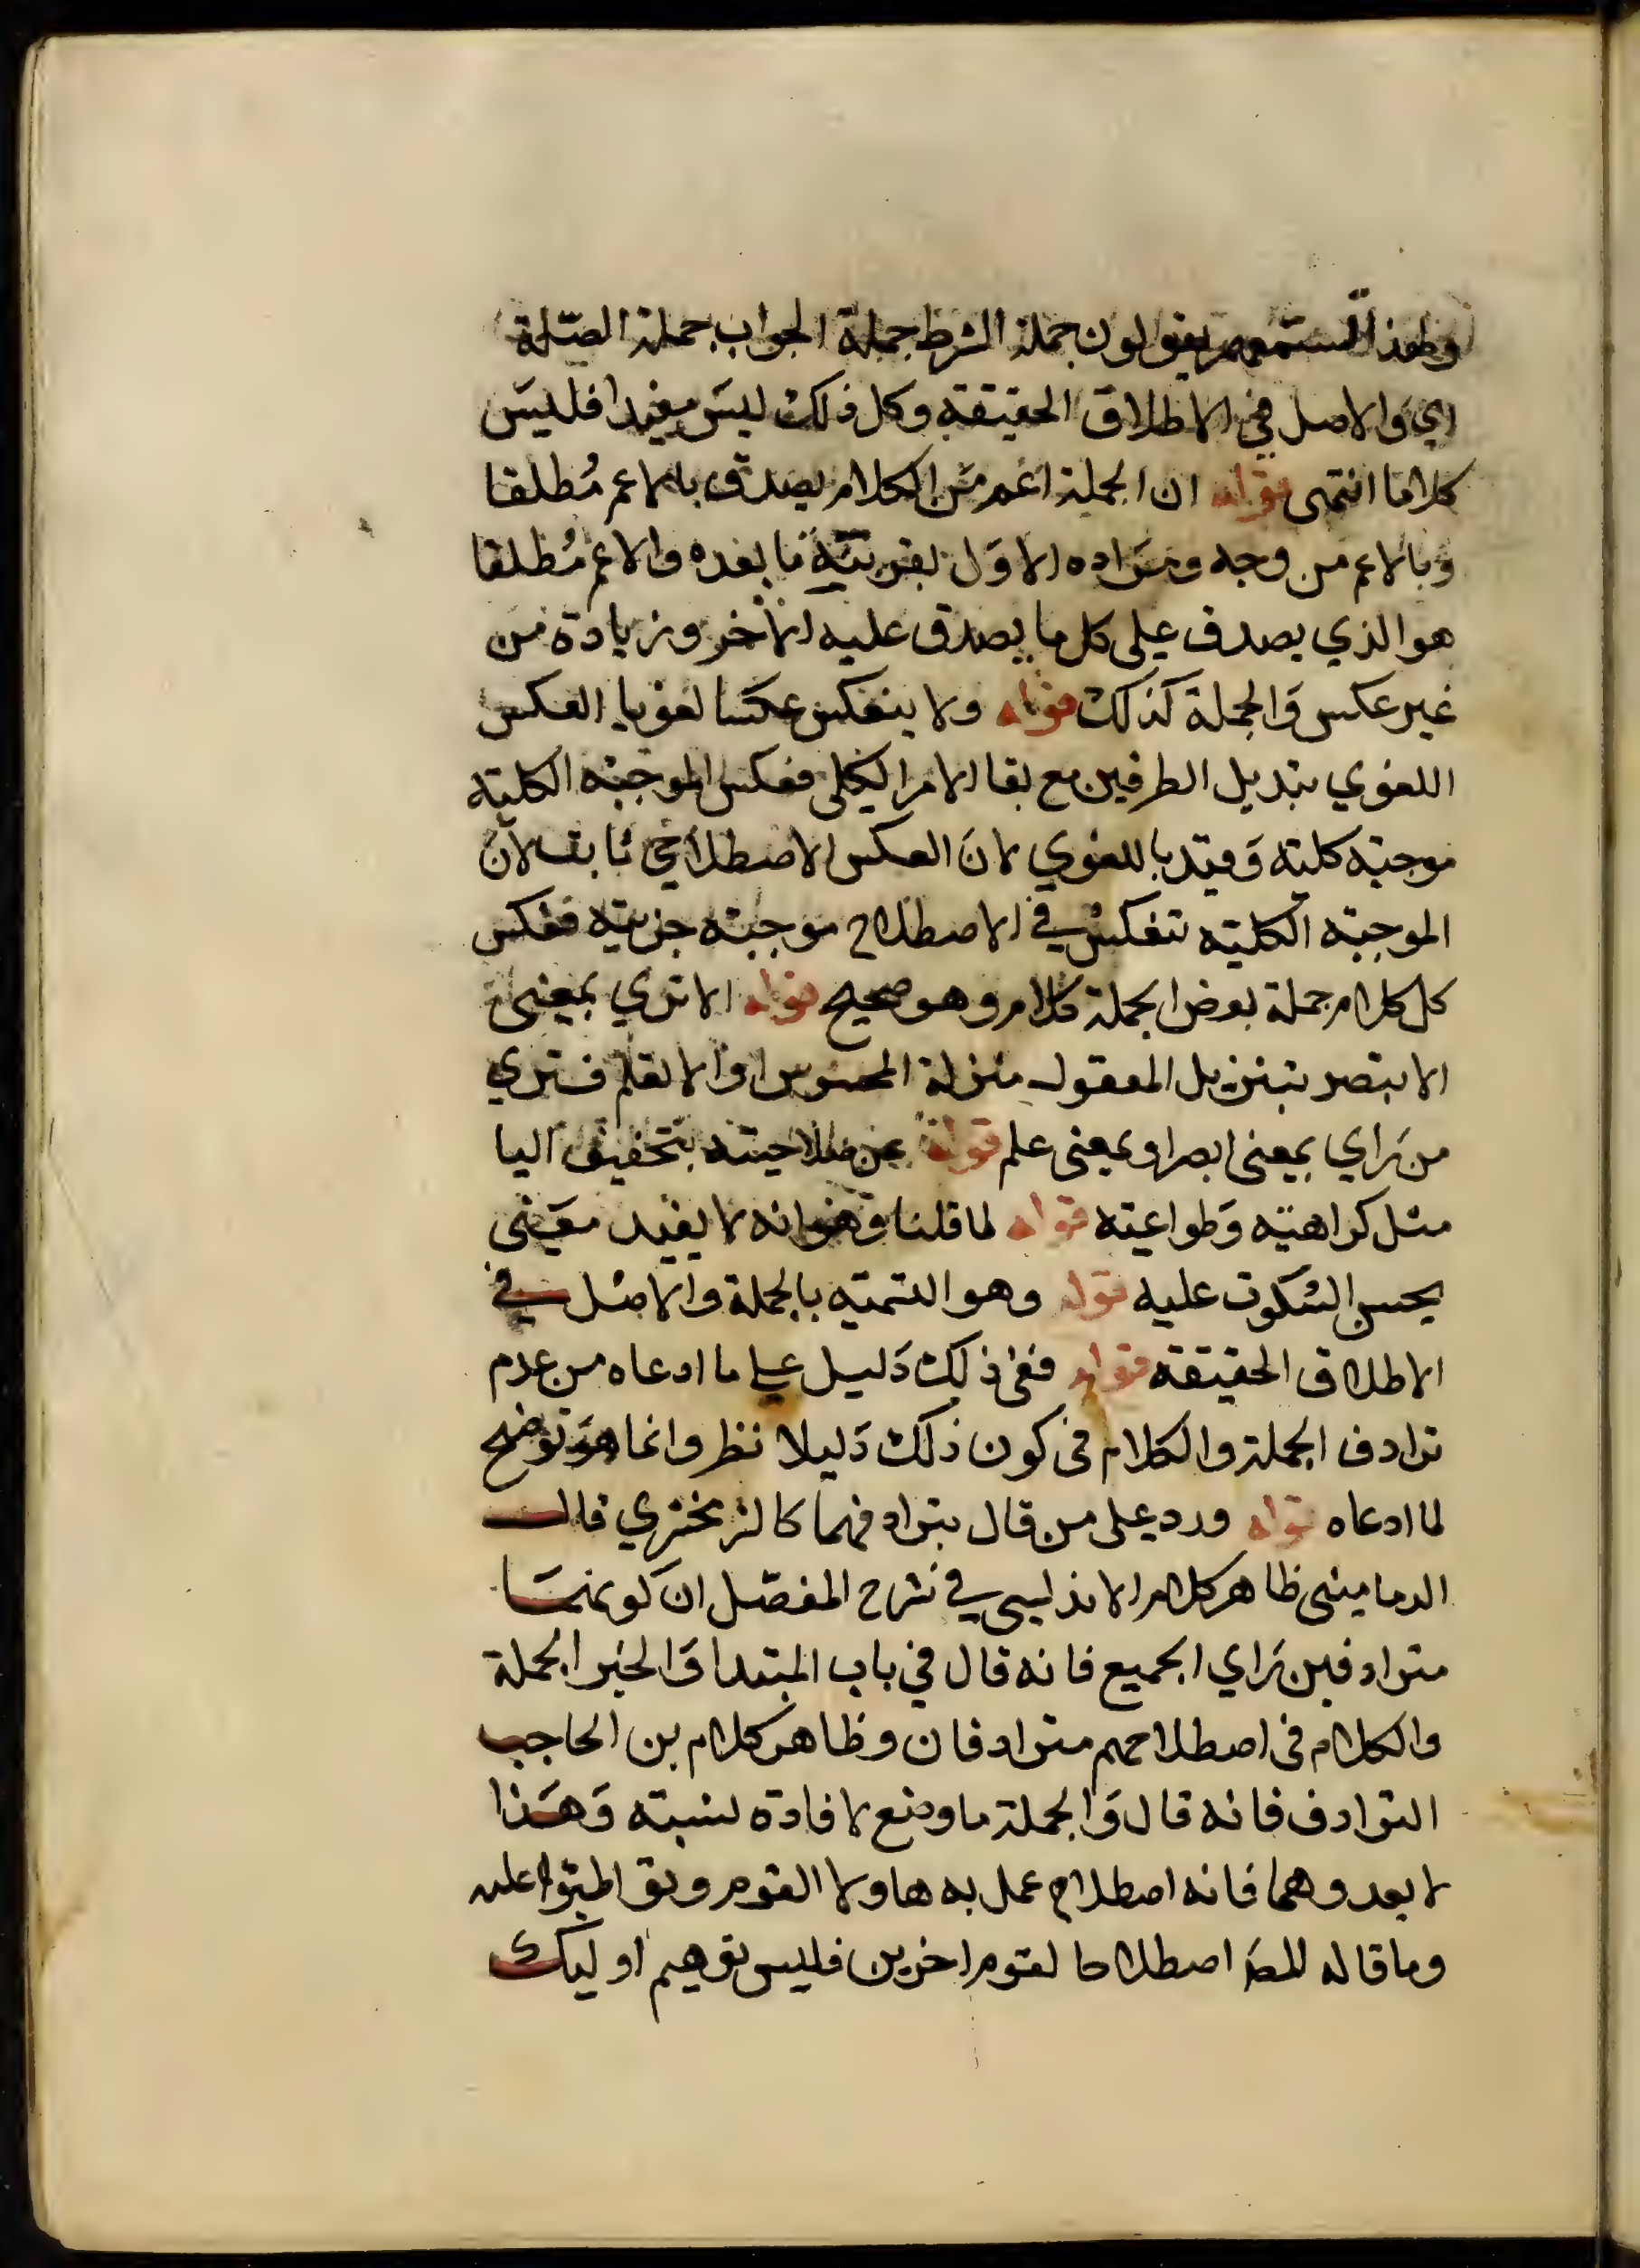 ولهذا تسمعهم يقولون جملة الشرط جملة الجواب جملة الصّلة
اي والاصل في الاطلاق الحقيقة وكل ذلك ليس مفيدا فليس
كلاما انتهى قوله ان الجملة اعم من الكلام يصدق بالاعم مُطلقا
وبالاعم من وجه ومراده الاوّل بقرينة ما بعده والاعم مُطلقا
هو الذي يصدق على كل ما يصدق عليه الآخر وزيادة من
غير عكس والجملة كذلك قوله ولا ينعكس عكسا لغويا العكس
اللغوي تبديل الطرفين مع بقا الامر الكلي فعكس الموجبة الكلية
موجبة كلية وقيد باللغوي لان العكس الاصطلاحي ثابت لان
الموجبة الكلية تنعكس في الاصطلاح موجبة جزئية فعكس
كل كلام جملة بعض الجملة كلام وهو صحيح قوله الا تري بمعنى
الا تبصر بتنزيل المعقول منزلة المحسوس او الا تعلم فتري
من راي بمعنى ابصر او بمعنى علم قوله عن صلاحيته بتخفيف اليا
مثل كراهية وطواعية قوله لما قلنا وهو انه لا يفيد معنى
يحسن السكوت عليه قوله وهو التسمية بالجملة والاصل في
الاطلاق الحقيقة قوله ففي ذلك دليل على ما ادعاه من عدم
ترادف الجملة والكلام في كون ذلك دليلا نظر وانما هو توضيح
لما ادعاه قوله ورد على من قال بترادفهما كالزمخشري قال
الدماميني ظاهر كلام الاندلسي في شرح المفصّل ان كونهما
مترادفين راي الجميع فانه قال في باب المبتدا والخبر الجملة
والكلام في اصطلاحهم مترادفان وظاهر كلام بن الحاجب
الترادف فانه قال والجملة ما وضع لافادة نسبة وهذا
لا يعد وهما فانه اصطلاح عمل به هاولا القوم وتواطئوا عليه
وما قاله المص اصطلاحا لقوم اخرين فليس توهيم اوليك